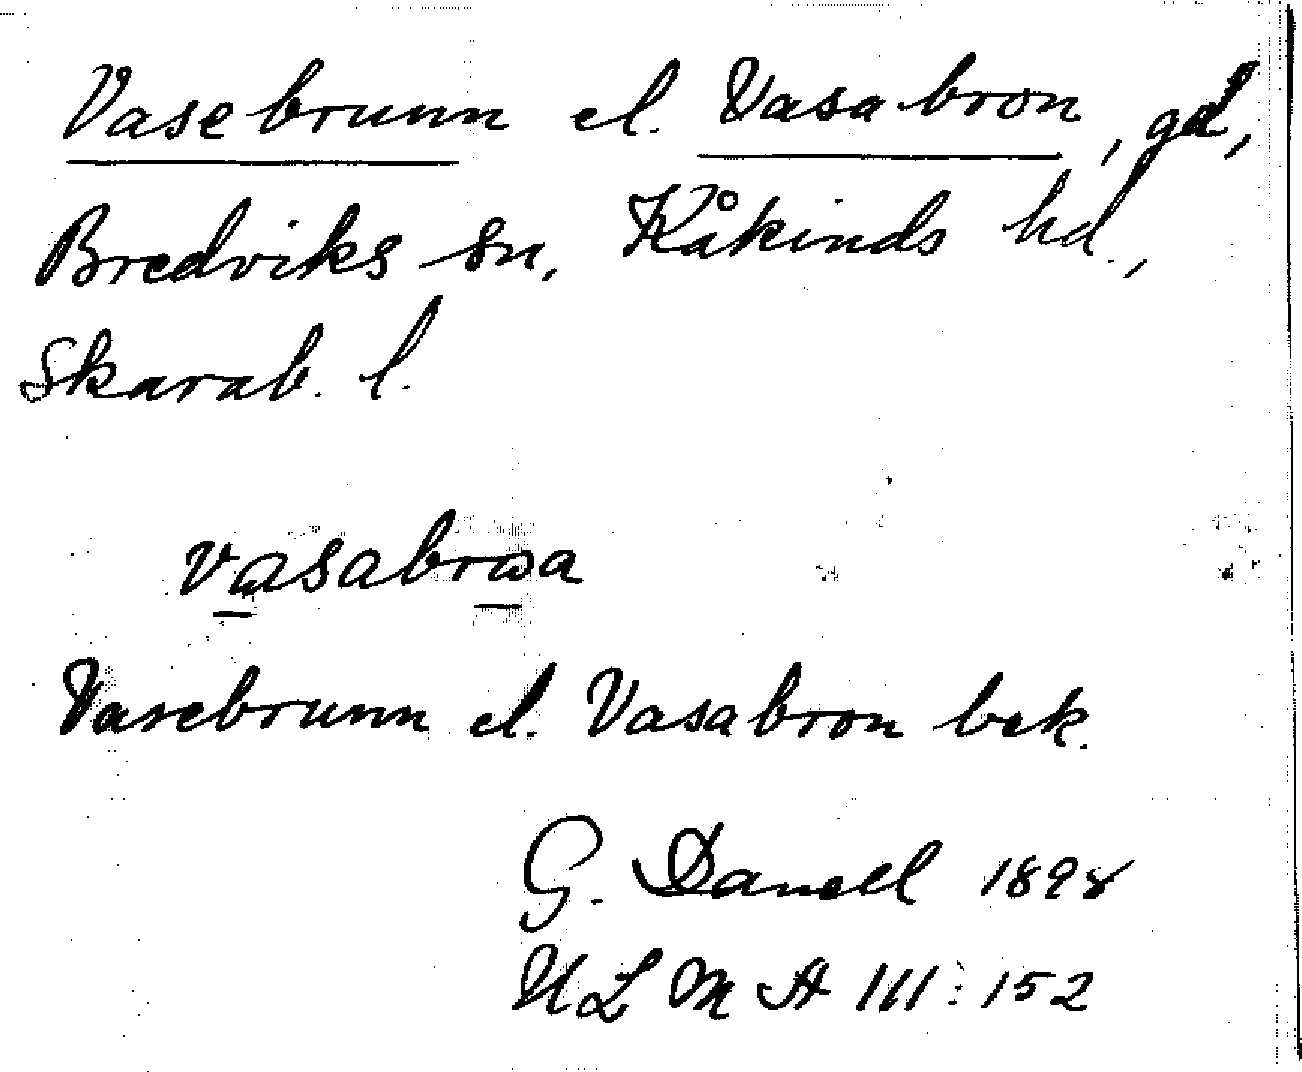 Vasebrunn el. Vasabron, gd,
Bredviks sn, Kåkinds hd.,
Skarab. l.
vasabrωa
Vasebrunn el. Vasabron bek.
G. Danell 1898
ULMA III:152